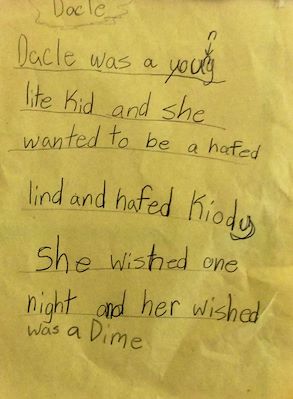 Dacle
Dacle was a young
lite kid and she
wanted to be a hafed
lind and hafed Kiody
She wished one
night and her wished
was a Dime